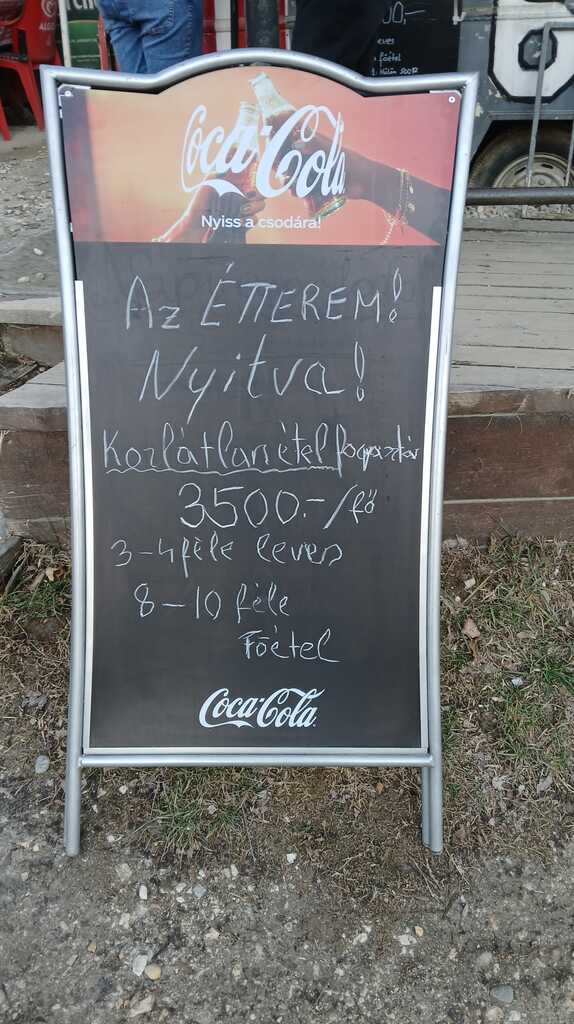 Coca-Cola
Nyiss a csodára!
Az ÉTTEREM!
Nyitva!
Korlátlan ételfogyasztás
3500.-/fő
3-4 féle leves
8-10 féle
Főétel
Coca-Cola